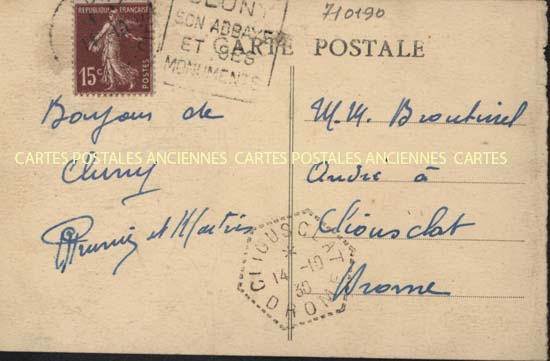 REPUBLIQUE FRANÇAISE
15c
POSTES
CLUNY
SON ABBAYE
ET SES
MONUMENTS
710190
CARTE POSTALE
Bonjour de
Cluny
et
M.M.
André à
Cliousclat
Drome
CLIOUSCLAT
*
14 -10
30
DROME
CARTES POSTALES ANCIENNES CARTES POSTALES ANCIENNES CARTES